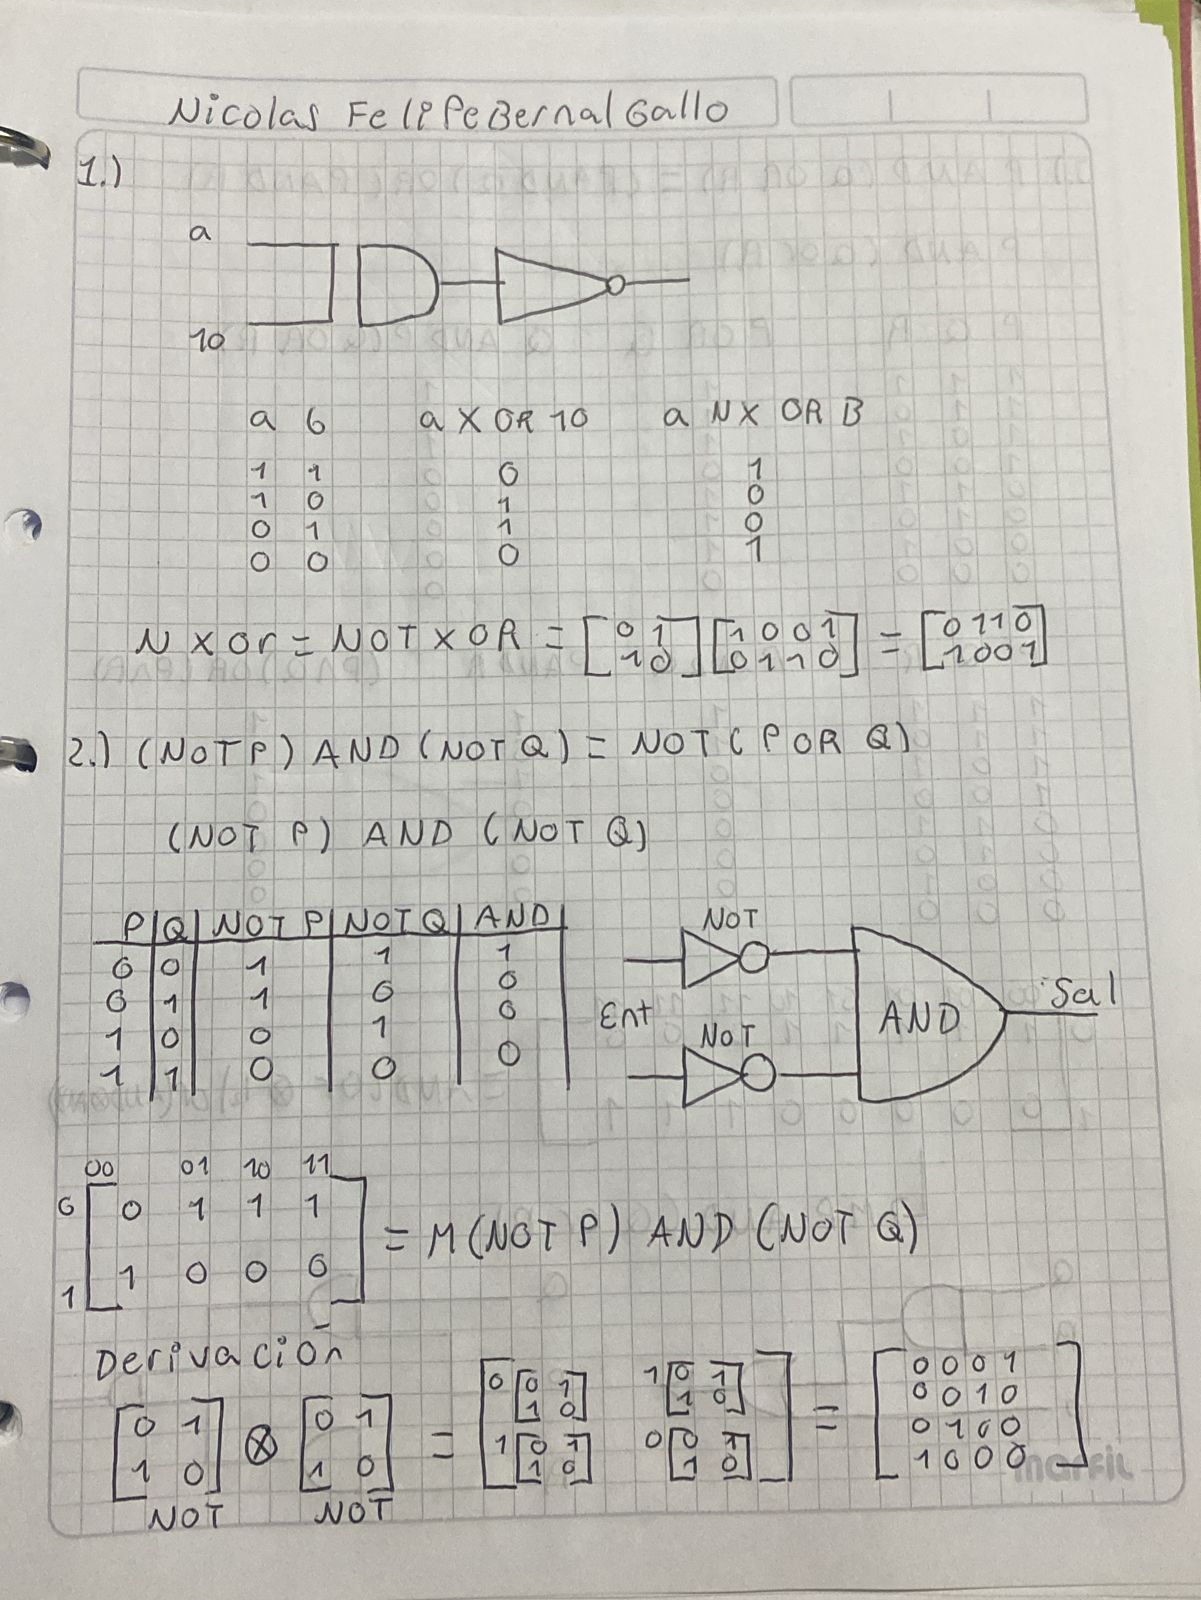 Nicolas Felipe Bernal Gallo
1.)
a
10
a 6 a XOR 10 a NX OR B
1 1 0 1
1 0 1 0
0 1 1 0
0 0 0 1
N XOr = NOT XOR = [0 1 [1 0 0 1 = [0 1 1 0
1 0] 0 1 1 0] 1 0 0 1]
2.) (NOT P) AND (NOT Q) = NOT (P OR Q)
(NOT P) AND (NOT Q)
P Q NOT P NOT Q AND
0 0 1 1 1
0 1 1 0 0
1 0 0 1 0
1 1 0 0 0
NOT
Ent
NOT
AND
Sal
00 01 10 11
0 0 1 1 1
= M (NOT P) AND (NOT Q)
1 1 0 0 0
Derivación
[0 1 ⊗ [0 1 = [0 [0 1 1 [0 1 = [0 0 0 1
1 0] 1 0] 1 0] 1 0] 0 0 1 0
1 [0 1 0 [0 1 0 1 0 0
1 0] 1 0]] 1 0 0 0]
NOT NOT
marfil